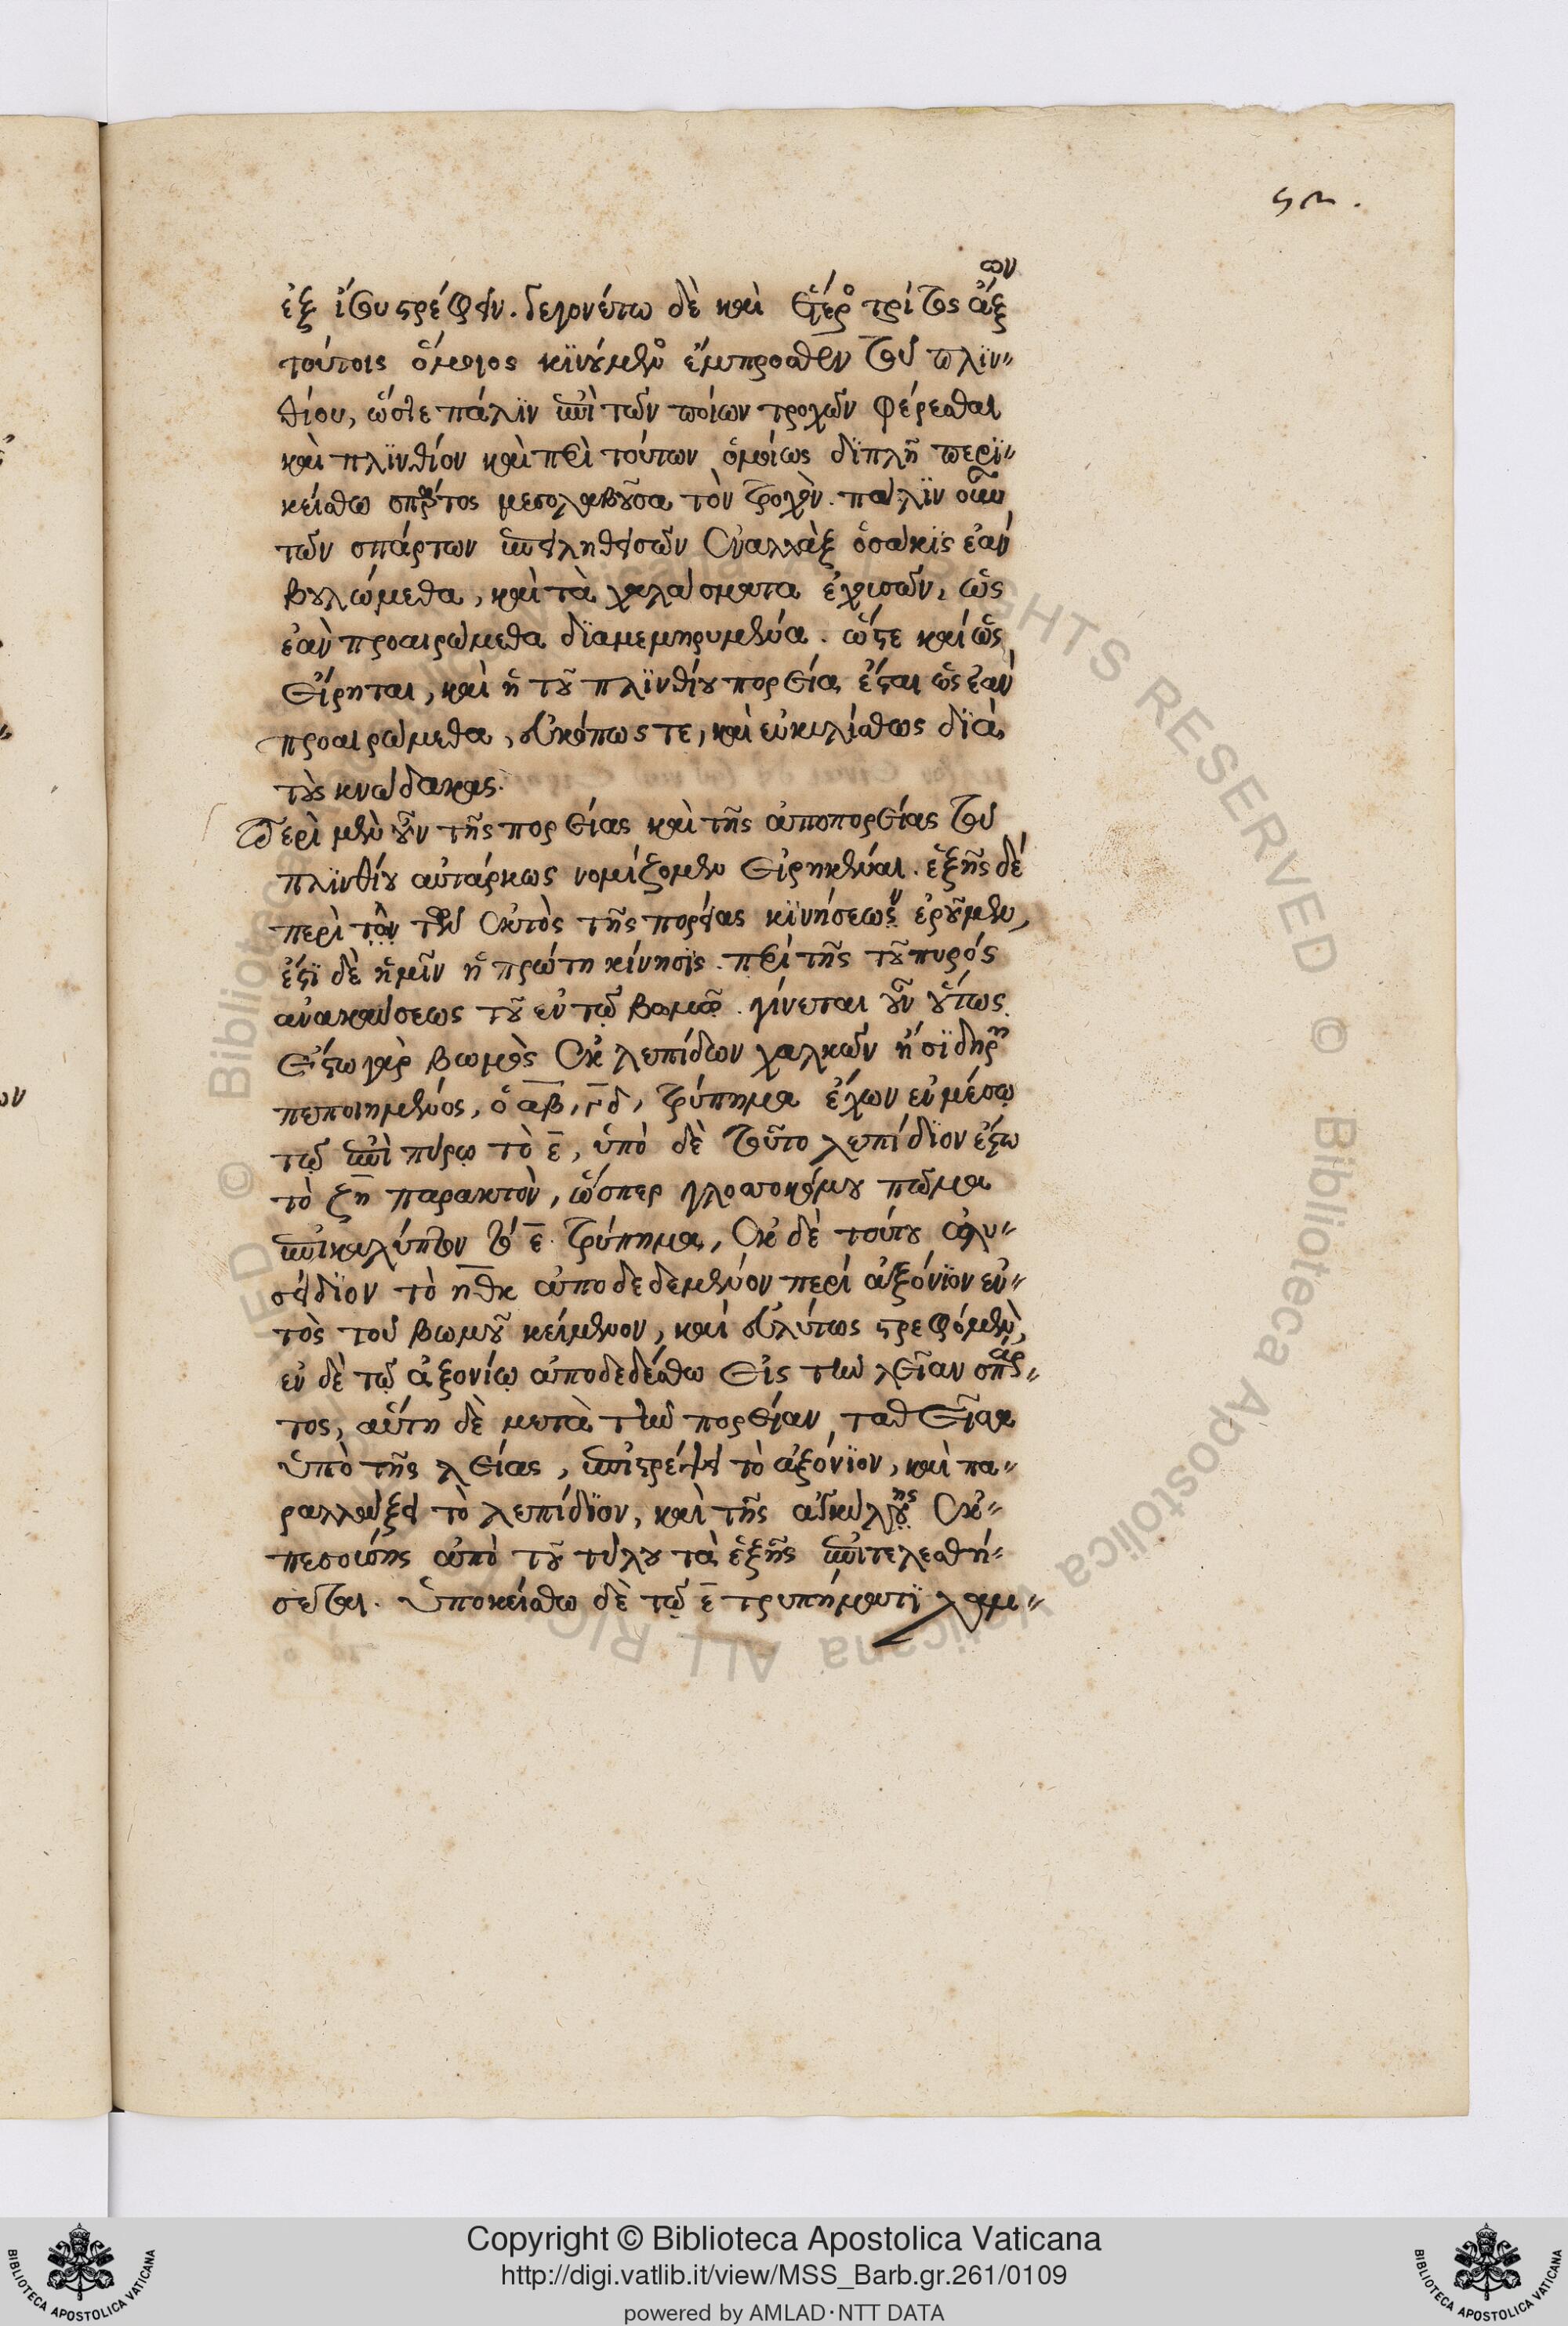 ςη.
ἐξ ἴσου στρέφειν. γεγονέτω δὲ καὶ ἕτερος τρίτος ἄξων
τούτοις ὅμοιος κινούμενος ἔμπροσθεν τοῦ πλιν-
θίου, ὥστε πάλιν ἐπὶ τῶν ποίων τροχῶν φέρεσθαι
καὶ πλινθίον καὶ περὶ τούτων ὁμοίως διπλῆ περι-
κείσθω σπάρτος μεσολαβοῦσα τὸν τροχὸν. πάλιν οὖν
τῶν σπάρτων ἐπειληθεισῶν ἐναλλὰξ ὁσάκις ἐὰν
βουλώμεθα, καὶ τὰ χαλάσματα ἐχουσῶν, ὡς
ἐὰν προαιρώμεθα διαμεμηρυμένα. ὥστε καὶ ὡς
εἴρηται, καὶ ἡ τοῦ πλινθίου πορεία ἔσται ὡς ἐὰν
προαιρώμεθα, εὐκόπως τε, καὶ εὐκυλίσθως διὰ
τοὺς κνώδακας.
Περὶ μὲν οὖν τῆς πορείας καὶ τῆς ἀποπορείας τοῦ
πλινθίου αὐτάρκως νομίζομεν εἰρηκέναι. ἑξῆς δέ
περὶ τῶν τὴν ἐκτὸς τῆς πορείας κινήσεως ἐροῦμεν,
ἔστι δὲ ἡμῖν ἡ πρώτη κίνησις περὶ τῆς τοῦ πυρός
ἀνακαύσεως τοῦ ἐν τῷ βωμῷ. γίνεται οὖν οὕτως.
ἔστω γὰρ βωμὸς ἐκ λεπίδων χαλκῶν ἢ σιδηρῶν
πεποιημένος, ὁ αβ, γδ, τρύπημα ἔχων ἐν μέσῳ
τῷ ἐπὶ πύρῳ τὸ ε, ὑπὸ δὲ τοῦτο λεπίδιον ἔστω
τὸ ζη παρακτὸν, ὥσπερ γλοσσοκόμου πῶμα
ἐπικαλύπτον τὸ ε τρύπημα, ἐκ δὲ τούτου ἁλυ-
σείδιον τὸ ηθκ ἀποδεδεμένον περὶ ἀξόνιον ἐν-
τὸς τοῦ βωμοῦ κείμενον, καὶ εὐλύτως στρεφόμενον,
ἐν δὲ τῷ ἀξονίῳ ἀποδεδέσθω εἰς τὴν λείαν σπάρ-
τος, αὕτη δὲ μετὰ τὴν πορείαν ταθεῖσα
ὑπὸ τῆς λείας, ἐπιστρέψει τὸ ἀξόνιον, καὶ πα-
ραλλάξει τὸ λεπίδιον, καὶ τῆς ἀγκύλης ἐκ-
πεσούσης ἀπὸ τοῦ τύλου τὰ ἑξῆς ἐπιτελεσθή-
σεται. ὑποκείσθω δὲ τῷ ε τρυπήματι λαμ-
Copyright © Biblioteca Apostolica Vaticana
http://digi.vatlib.it/view/MSS_Barb.gr.261/0109
powered by AMLAD·NTT DATA